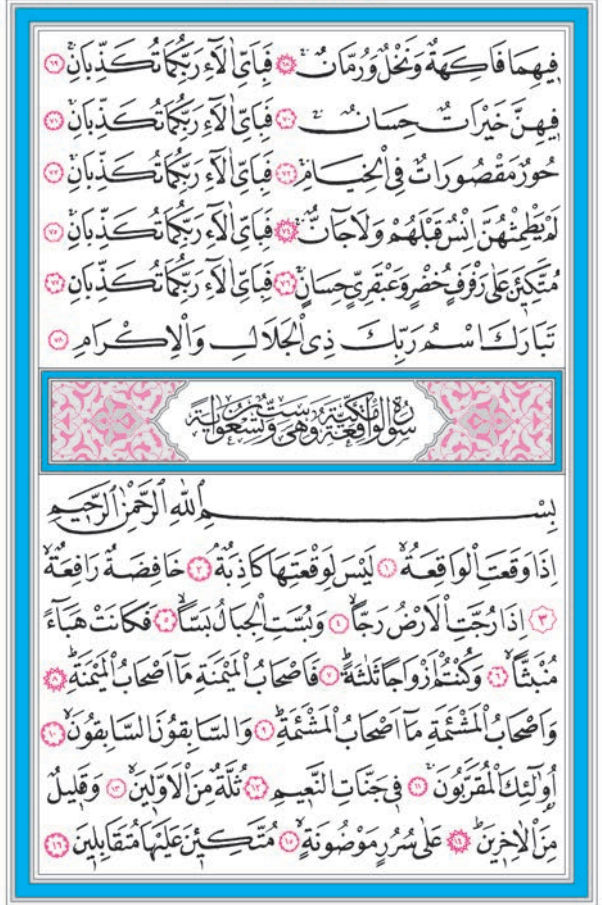 فِيهِمَا فَاكِهَةٌ وَنَخْلٌ وَرُمَّانٌۚ ﴿٦٨﴾ فَبِاَيِّ اٰلَٓاءِ رَبِّكُمَا تُكَذِّبَانِۚ ﴿٦٩﴾
فِيهِنَّ خَيْرَاتٌ حِسَانٌۚ ﴿٧٠﴾ فَبِاَيِّ اٰلَٓاءِ رَبِّكُمَا تُكَذِّبَانِۚ ﴿٧١﴾
حُورٌ مَقْصُورَاتٌ فِي الْخِيَامِۚ ﴿٧٢﴾ فَبِاَيِّ اٰلَٓاءِ رَبِّكُمَا تُكَذِّبَانِۚ ﴿٧٣﴾
لَمْ يَطْمِثْهُنَّ اِنْسٌ قَبْلَهُمْ وَلَا جَٓانٌّۚ ﴿٧٤﴾ فَبِاَيِّ اٰلَٓاءِ رَبِّكُمَا تُكَذِّبَانِۚ ﴿٧٥﴾
مُتَّكِـِٔينَ عَلٰى رَفْرَفٍ خُضْرٍ وَعَبْقَرِيٍّ حِسَانٍۚ ﴿٧٦﴾ فَبِاَيِّ اٰلَٓاءِ رَبِّكُمَا تُكَذِّبَانِ ﴿٧٧﴾
تَبَارَكَ اسْمُ رَبِّكَ ذِي الْجَلَالِ وَالْاِكْرَامِ ﴿٧٨﴾
سُورَةُ الْوَاقِعَةِ مَكِّيَّةٌ وَهِيَ سِتٌّ وَتِسْعُونَ اٰيَةً
بِسْمِ اللّٰهِ الرَّحْمٰنِ الرَّحِيمِ
اِذَا وَقَعَتِ الْوَاقِعَةُۙ ﴿١﴾ لَيْسَ لِوَقْعَتِهَا كَاذِبَةٌۢ ﴿٢﴾ خَافِضَةٌ رَافِعَةٌۙ
﴿٣﴾ اِذَا رُجَّتِ الْاَرْضُ رَجًّاۙ ﴿٤﴾ وَبُسَّتِ الْجِبَالُ بَسًّاۙ ﴿٥﴾ فَكَانَتْ هَبَٓاءً
مُنْبَثًّاۙ ﴿٦﴾ وَكُنْتُمْ اَزْوَاجًا ثَلٰثَةًۜ ﴿٧﴾ فَاَصْحَابُ الْمَيْمَنَةِ مَٓا اَصْحَابُ الْمَيْمَنَةِۜ ﴿٨﴾
وَاَصْحَابُ الْمَشْـَٔمَةِ مَٓا اَصْحَابُ الْمَشْـَٔمَةِۜ ﴿٩﴾ وَالسَّابِقُونَ السَّابِقُونَۙ ﴿١٠﴾
اُو۬لٰٓئِكَ الْمُقَرَّبُونَۚ ﴿١١﴾ فِي جَنَّاتِ النَّعِيمِ ﴿١٢﴾ ثُلَّةٌ مِنَ الْاَوَّلِينَۙ ﴿١٣﴾ وَقَلِيلٌ
مِنَ الْاٰخِرِينَۜ ﴿١٤﴾ عَلٰى سُرُرٍ مَوْضُونَةٍۙ ﴿١٥﴾ مُتَّكِـِٔينَ عَلَيْهَا مُتَقَابِلِينَ ﴿١٦﴾